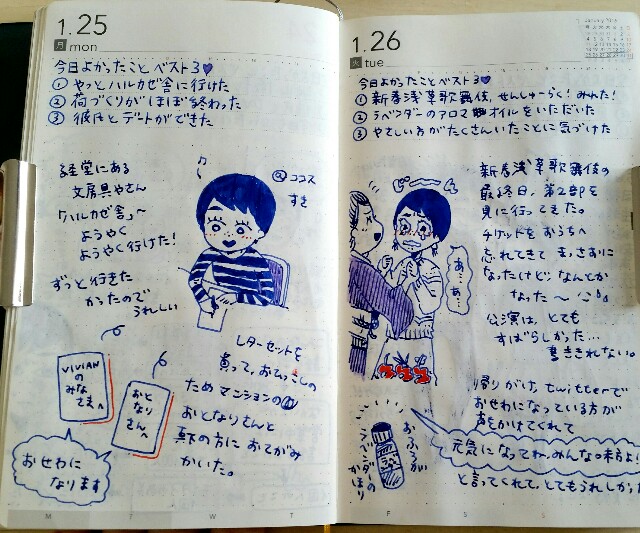 1.25
月 mon
今日よかったことベスト3♥
① やっとハルカゼ舎に行けた
② 荷づくりがほぼ終わった
③ 彼氏とデートができた
経堂にある
文房具やさん
「ハルカゼ舎」へ
ようやく
ようやく行けた!
ずっと行きた
かったので
うれしい
@ ココス
すき
レターセットを
買って、おてつこしの
ため マンションの
おとなりさんと
真下の方に おてがみ
かいた。
VIVIANの
みな
さまへ
おと
なり
さんへ
おせわに
なります
M
T
W
T
1.26
火 tue
January
今日よかったこと ベスト3♥
① 新春浅草歌舞伎、せんしゅーらく!みれた!
② ラベンダーのアロマオイルをいただいた
③ やさしい方がたくさんいたことに気づけた
新春浅草歌舞伎の
最終日、第2部を
見に行ってきた。
チケットをおうちへ
忘れてきて まっさおに
なったけど、なんとか
なった〜
公演は、とても
すばらしかった…
書ききれない。
じーん
あ…
あ…
帰りがけ、twitterで
おせわになっている方が
声をかけてくれて
元気になってね、みんな味方よ!
と言ってくれて、とてもうれしかった
おふろが
ラベンダーの
かほり
F
S
S